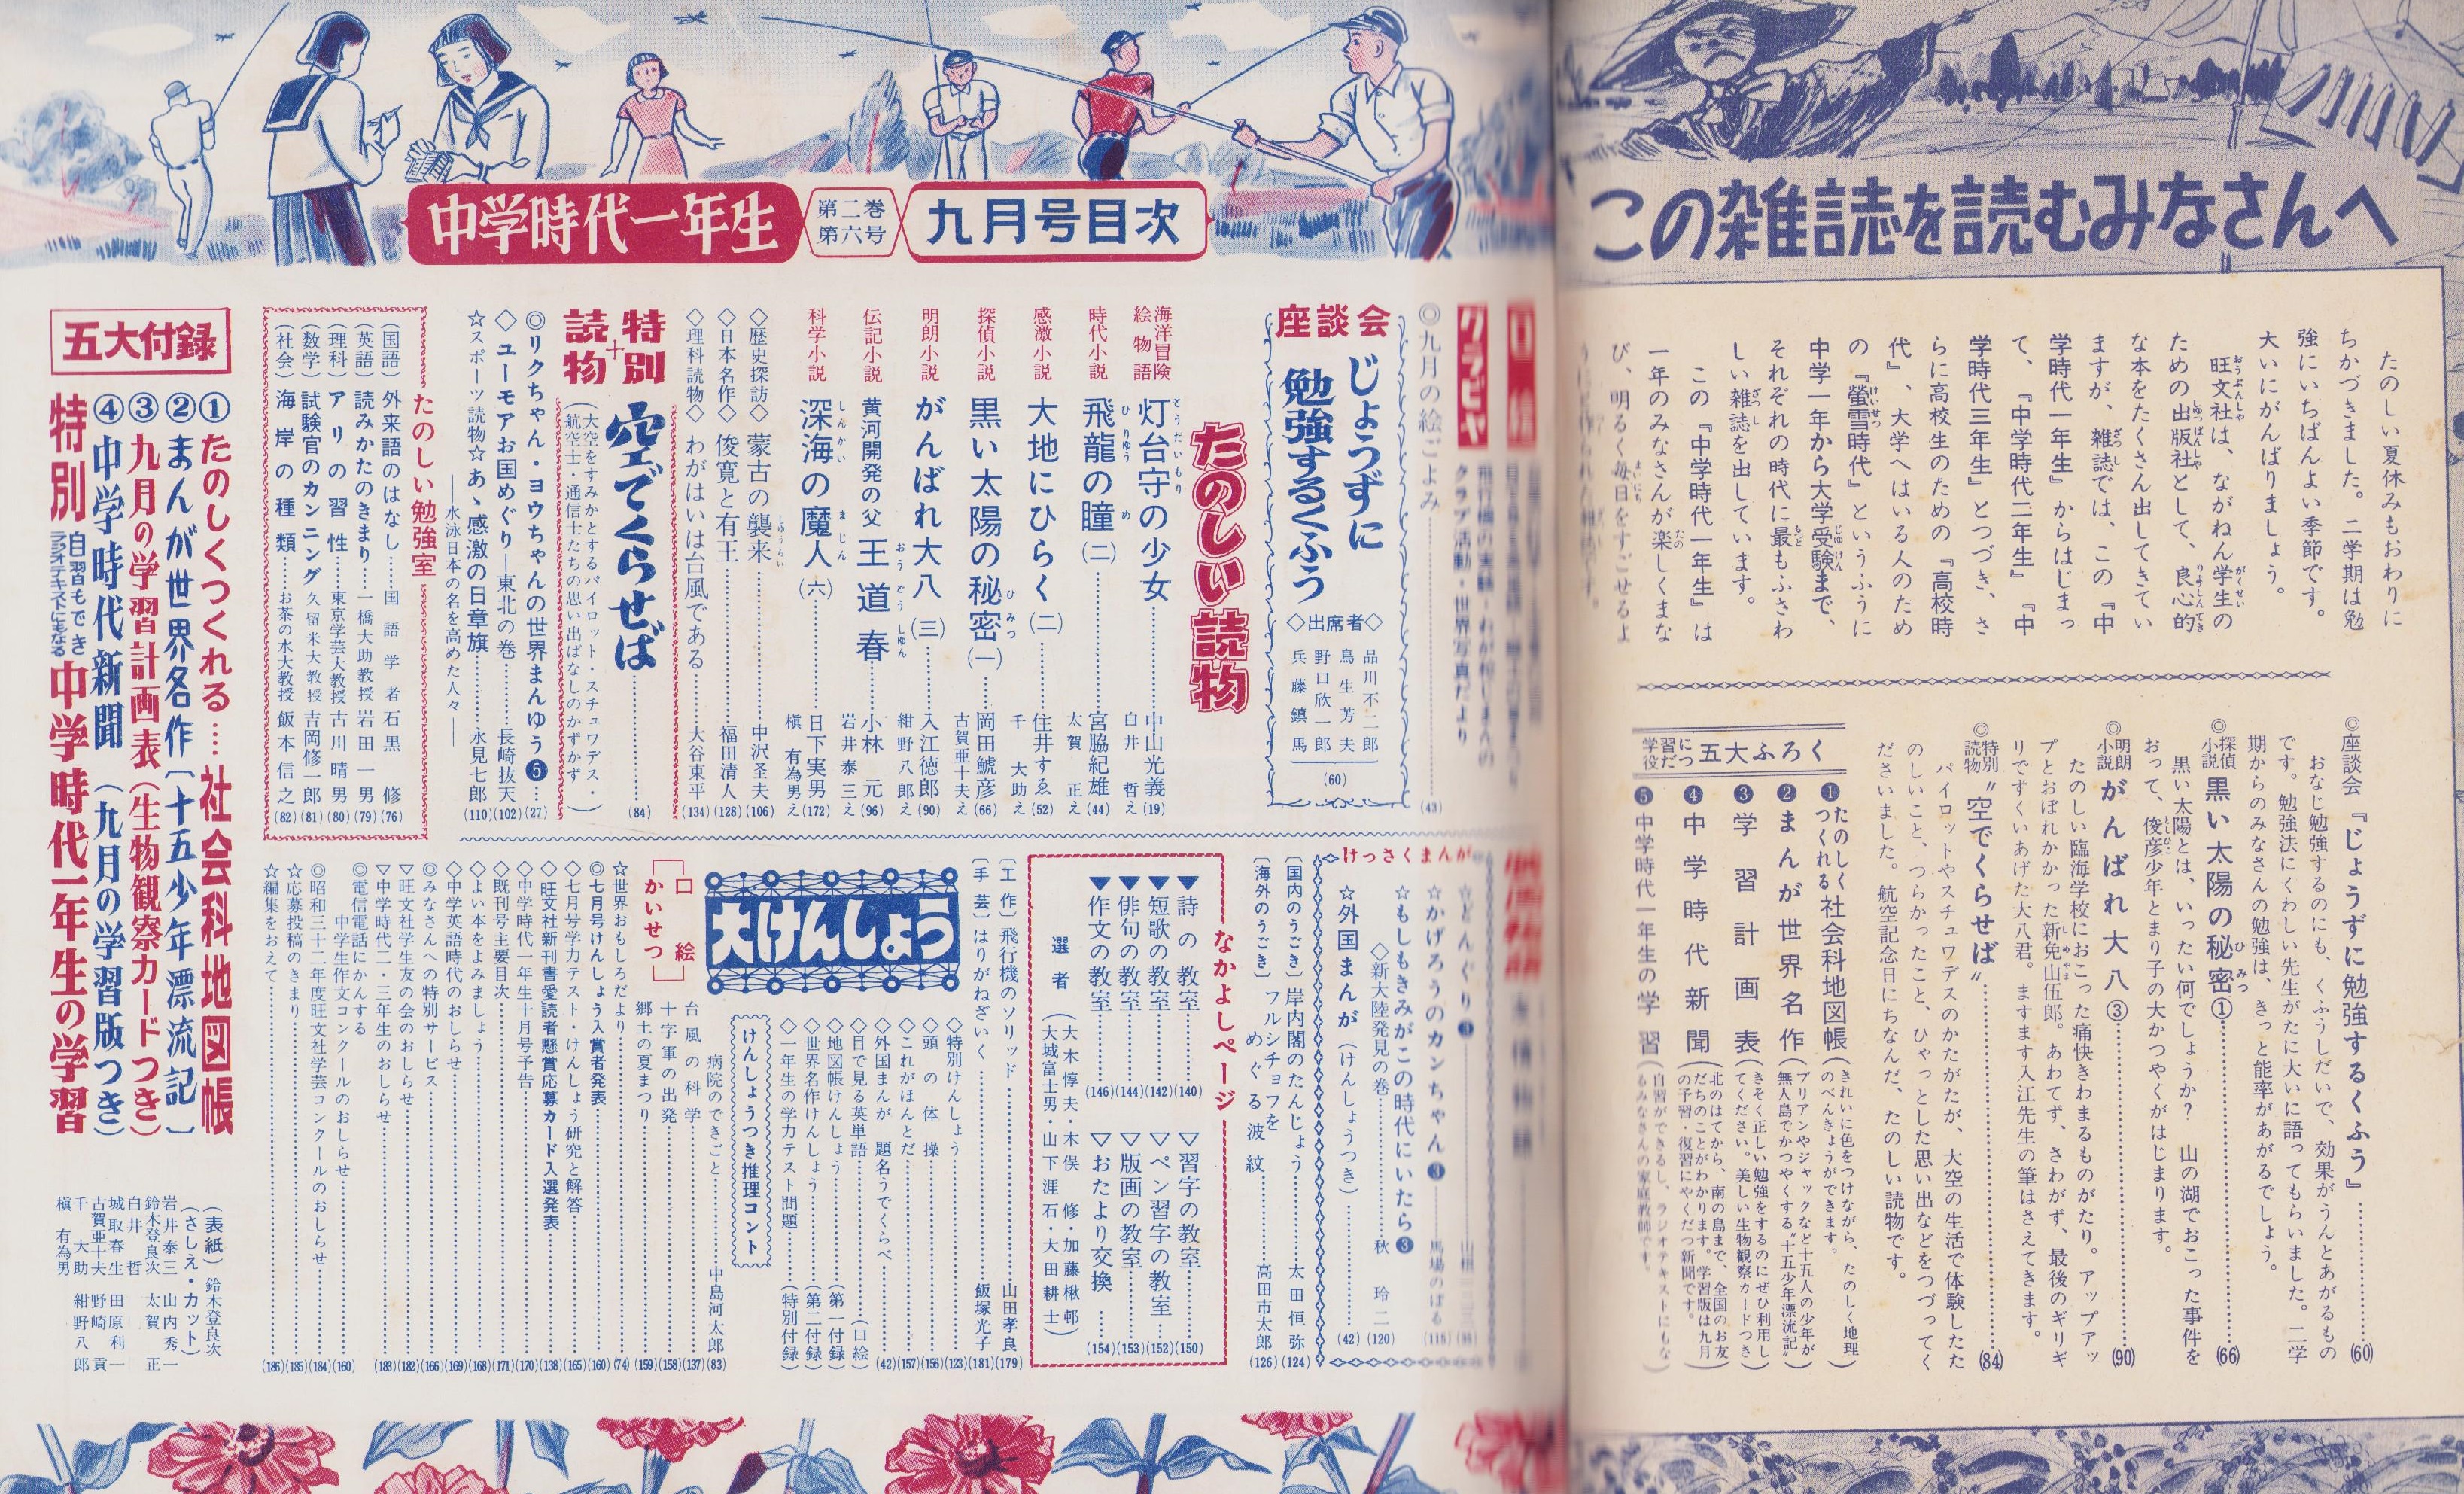 この雑誌を読むみなさんへ
たのしい夏休みもおわりに
ちかづきました。二学期は勉
強にいちばんよい季節です。
大いにがんばりましょう。
旺文社は、ながねん学生の
ための出版社として、良心的
な本をたくさん出してきてい
ますが、雑誌では、この『中
学時代一年生』からはじまっ
て、『中学時代二年生』『中
学時代三年生』とつづき、さ
らに高校生のための『高校時
代』、大学へはいる人のため
の『螢雪時代』というふうに
中学一年から大学受験まで、
それぞれの時代に最もふさわ
しい雑誌を出しています。
この『中学時代一年生』は
一年のみなさんが楽しくまな
び、明るく毎日をすごせるよ
◎座談会『じょうずに勉強するくふう』(60)
おなじ勉強するのにも、くふうしだいで、効果がうんとあがるもの
です。勉強法にくわしい先生がたに大いに語ってもらいました。二学
期からのみなさんの勉強は、きっと能率があがるでしょう。
◎探偵小説 黒い太陽の秘密①(66)
黒い太陽とは、いったい何でしょうか? 山の湖でおこった事件を
おって、俊彦少年とまり子の大かつやくがはじまります。
◎明朗小説 がんばれ大八③(90)
たのしい臨海学校におこった痛快きわまるものがたり。アップアッ
プとおぼれかかった新免山伍郎。あわてず、さわがず、最後のギリギ
リですくいあげた大八君。ますます入江先生の筆はさえてきます。
◎特別読物 〝空でくらせば〟(84)
パイロットやスチュワデスのかたがたが、大空の生活で体験したた
のしいこと、つらかったこと、ひやっとした思い出などをつづってく
ださいました。航空記念日にちなんだ、たのしい読物です。
学習に役だつ 五大ふろく
❶たのしくつくれる社会科地図帳(きれいに色をつけながら、たのしく地理のべんきょうができます。)
❷まんが世界名作(ブリアンやジャックなど十五人の少年が無人島でかつやくする〝十五少年漂流記〟)
❸学習計画表(きそく正しい勉強をするのにぜひ利用してください。美しい生物観察カードつき)
❹中学時代新聞(北のはてから、南の島まで、全国のお友だちのことがわかります。学習版は九月の予習・復習にやくだつ新聞です。)
❺中学時代一年生の学習(自習ができるし、ラジオテキストにもなるみなさんの家庭教師です。)
中学時代一年生
第二巻
第六号
九月号目次
グラビヤ
◎九月の絵ごよみ(43)
座談会
じょうずに
勉強するくふう
◇出席者◇
品川不二郎
鳥生芳夫
野口欣一郎
兵藤鎮馬
(60)
たのしい読物
海洋冒険絵物語 灯台守の少女 中山光義 白井哲え(19)
時代小説 飛龍の瞳(二) 宮脇紀雄 太賀正え(44)
感激小説 大地にひらく(二) 住井すゑ 千大助え(52)
探偵小説 黒い太陽の秘密(一) 岡田鯱彦 古賀亜十夫え(66)
明朗小説 がんばれ大八(三) 入江徳郎 紺野八郎え(90)
伝記小説 黄河開発の父 王道春 小林元 岩井泰三え(96)
科学小説 深海の魔人(六) 日下実男 槇有為男え(172)
◇歴史探訪◇蒙古の襲来 中沢圣夫(106)
◇日本名作◇俊寛と有王 福田清人(128)
◇理科読物◇わがはいは台風である 大谷東平(134)
特別読物
空でくらせば(84)
(大空をすみかとするパイロット・スチュワデス・
航空士・通信士たちの思い出ばなしのかずかず)
◎リクちゃん・ヨウちゃんの世界まんゆう❺(27)
◇ユーモアお国めぐり―東北の巻 長崎抜天(102)
☆スポーツ読物☆あゝ感激の日章旗 永見七郎(110)
――水泳日本の名を高めた人々――
たのしい勉強室
(国語)外来語のはなし 国語学者 石黒修(76)
(英語)読みかたのきまり 一橋大助教授 岩田一男(79)
(理科)アリの習性 東京学芸大教授 古川晴男(80)
(数学)試験官のカンニング 久留米大教授 吉岡修一郎(81)
(社会)海岸の種類 お茶の水大教授 飯本信之(82)
けっさくまんが
☆どんぐり❸
☆かげろうのカンちゃん❸ 馬場のぼる
☆もしもきみがこの時代にいたら❸
◇新大陸発見の巻 秋玲二(120)
☆外国まんが(けんしょうつき)(42)
〔国内のうごき〕岸内閣のたんじょう 太田恒弥(124)
〔海外のうごき〕フルシチョフをめぐる波紋 高田市太郎(126)
なかよしページ
▼詩の教室(140)
▼短歌の教室(142)
▼俳句の教室(144)
▼作文の教室(146)
▽習字の教室(150)
▽ペン習字の教室(152)
▽版画の教室(153)
▽おたより交換(154)
選者(大木惇夫・木俣修・加藤楸邨
大城富士男・山下涯石・大田耕士)
〔工作〕飛行機のソリッド 山田孝良(179)
〔手芸〕はりがねざいく 飯塚光子(181)
大けんしょう
◇特別けんしょう(123)
◇頭の体操(156)
◇これがほんとだ(157)
◇外国まんが 題名うでくらべ(42)
◇目で見る英単語(口絵)
◇地図帳けんしょう(第一付録)
◇世界名作けんしょう(第二付録)
◇一年生の学力テスト問題(特別付録)
けんしょうつき推理コント
病院のできごと 中島河太郎(83)
口絵かいせつ
台風の科学(137)
十字軍の出発(158)
郷土の夏まつり(159)
☆世界おもしろだより(74)
◎七月号けんしょう入賞者発表(160)
◇七月号学力テスト・けんしょう研究と解答(165)
◇旺文社新刊書愛読者懸賞応募カード入選発表(138)
◇中学時代一年生十月号予告(170)
◇既刊号主要目次(171)
◇よい本をよみましょう(168)
◇中学英語時代のおしらせ(169)
◎みなさんへの特別サービス(166)
▽旺文社学生友の会のおしらせ(182)
▽中学時代二・三年生のおしらせ(183)
◎電信電話にかんする
中学生作文コンクールのおしらせ(160)
◎昭和三十二年度旺文社学芸コンクールのおしらせ(184)
☆応募投稿のきまり(185)
☆編集をおえて(186)
五大付録
①たのしくつくれる…社会科地図帳
②まんが世界名作〔十五少年漂流記〕
③九月の学習計画表(生物観察カードつき)
④中学時代新聞(九月の学習版つき)
特別 自習もできラジオテキストにもなる 中学時代一年生の学習
(表紙)鈴木登良次
(さしえ・カット)
岩井泰三 山内秀一
鈴木登良次 太賀正
白井哲
城取春生 田原利一
古賀亜十夫 野崎貢
千大助 紺野八郎
槇有為男